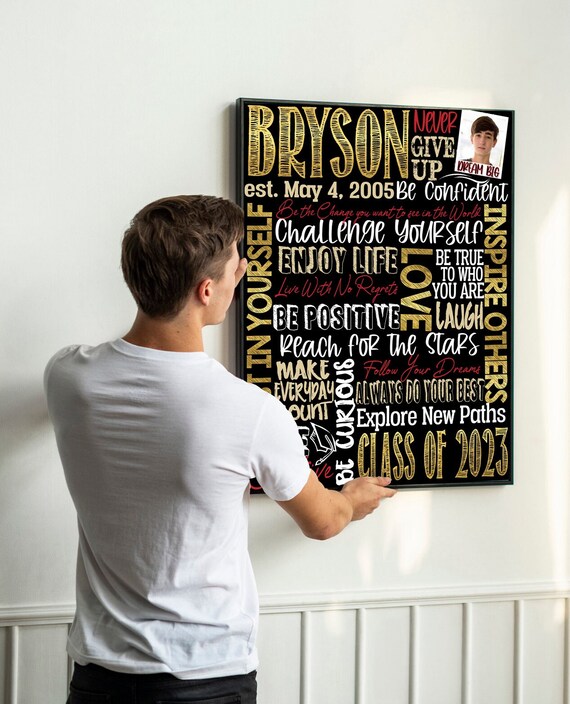 BRYSON
NEVER
GIVE
UP
DREAM BIG
est. May 4, 2005
Be Confident
Be the Change you want to see in the World
Challenge Yourself
ENJOY LIFE
Live With No Regrets
LOVE
BE TRUE
TO WHO
YOU ARE
INSPIRE OTHERS
IN YOURSELF
BE POSITIVE
LAUGH
Reach for the Stars
MAKE
EVERYDAY
OUNT
BE CURIOUS
Follow Your Dreams
ALWAYS DO YOUR BEST
Explore New Paths
CLASS OF 2023